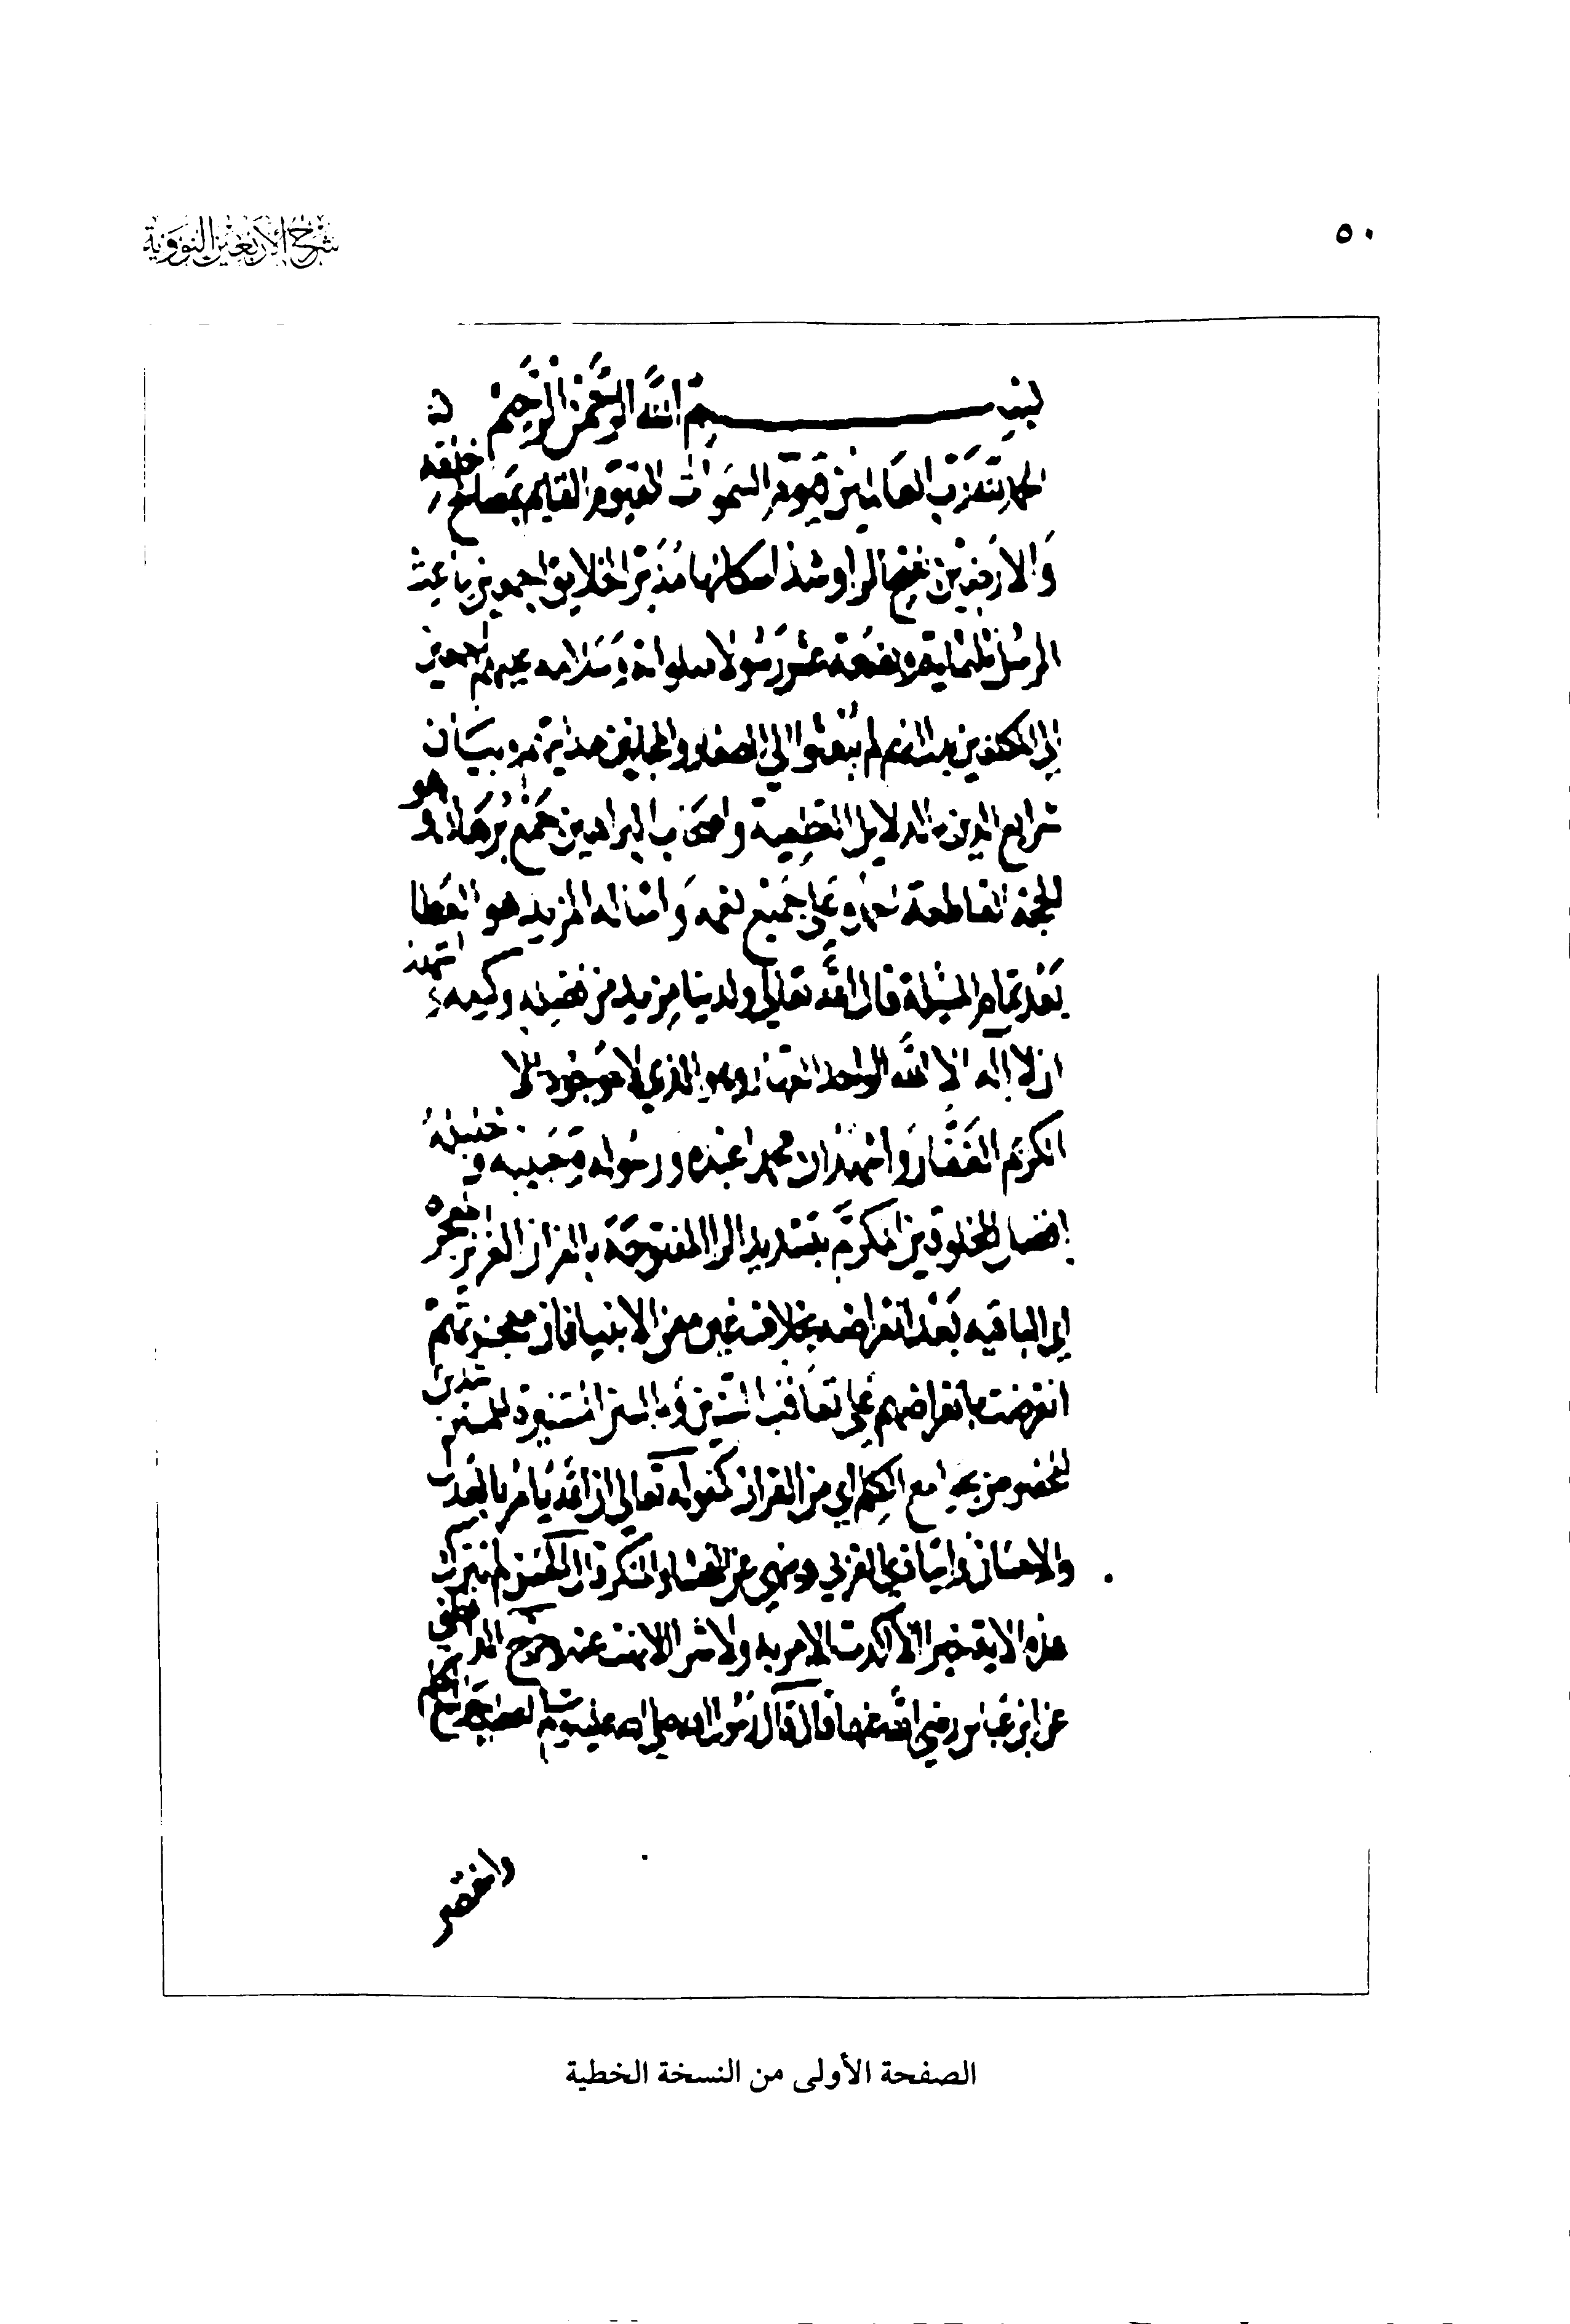 ٥٠
شرح الأربعين النووية
بسم الله الرحمن الرحيم
الحمد لله رب العالمين قيوم السموات القيوم القايم بمصالح خلقه
والارضين بفتح الرا وشذ اسكانها مدبر الخلايق اجمعين باعث
الرسل ثلثماية وبضعة عشر رسولا صلواته وسلامه عليهم اجمعين
الي المكلفين لم يبعثوا الي الصغار والمجانين هدايتهم وبيان
شرايع الدين بالدلايل القطعية وواضحات البراهين جمع برهان وهو
الحجة القاطعة احمده على جميع نعمه واساله المزيد هو العطا
بعد تمام المسئلة قال الله تعالى ولدينا مزيد من فضله وكرمه واشهد
ان لا اله الا الله الواحد القهار وهو الذي لا موجود الا
الكريم الغفار واشهد ان محمدا عبده ورسوله وحبيبه وخليله
افضل المخلوقين المكرم بتشديد الرا المفتوحة بالقران العزيز المعجزة
اي الباقيه بعد انقراضه بخلاف غيره من الانبيا فان معجزتهم
انقرضت بانقراضهم على تعاقب السنين وبالسنن المستنيرة للمسترشدين
المخصوص بجوامع الكلم اي من القران كقوله تعالى ان الله يامر بالعدل
والاحسان وايتاء ذي القربى وينهى عن الفحشا والمنكر قال الحسن لم تترك
هذه الاية خيرا الا امرت به ولا شرا الا نهت عنه
عن ابن عباس رضي الله عنهما قال قال رسول الله صلى الله عليه وسلم اعطيت جوامع الكلم
واختصر
الصفحة الأولى من النسخة الخطية